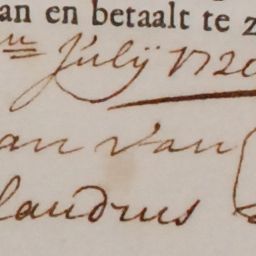 an en betaalt te z
en July 1720
an Van
landrus